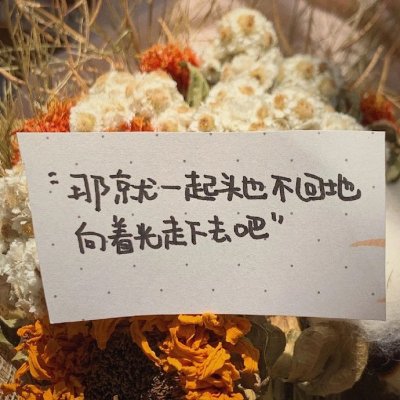 "那就一起头也不回地
向着光走下去吧"